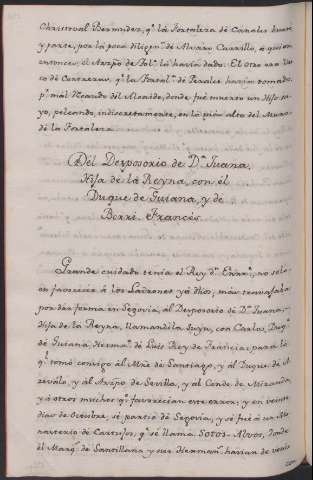 Christoval Bermudez, qe. la Fortaleza de Canales huvo
y parte, por la poca diligen.a de Alvaro Carrillo, á quien
entonces, el Arzpo de Tol.o la havia dado. El otro era
co de Contreras, qe. la Fortal.a de Perales havian tomado
pr. mal Recaudo del Alcaide, donde fué muerto un Hijo su-
yo, peleando, indiscretamente, en lo más alto del Muro
de la Fortaleza.
Del Desposorio de D.a Juana,
Hija de la Reyna, con el
Duque de Guiana, y de
Berri. Francés.
Grande cuidado tenia el Rey Dn. Enrr.e, no solo
en favorecer á los Ladrones yá dhos, mas trabajaba
por dar forma en Segovia, al Desposorio de D.a Juana,
Hija de la Reyna, llamandola suya, con Carlos, Duq.e
de Guiana, Herma.o de Luis Rey de Francia; para lo
qe. tomó consigo al Mre. de Santiago, y al Duque de A-
révalo, y al Arzpo de Sevilla, y al Conde de Miranda
y á otros muchos qe. favorecian este error; y en veinte
dias de Octubre, se partió de Segovia, y se fué á un Mo-
nasterio de Cartujos, qe. se llama Sotos-Alvos, donde
el Marq.s de Santillana y sus Herman.s havian de venir
con